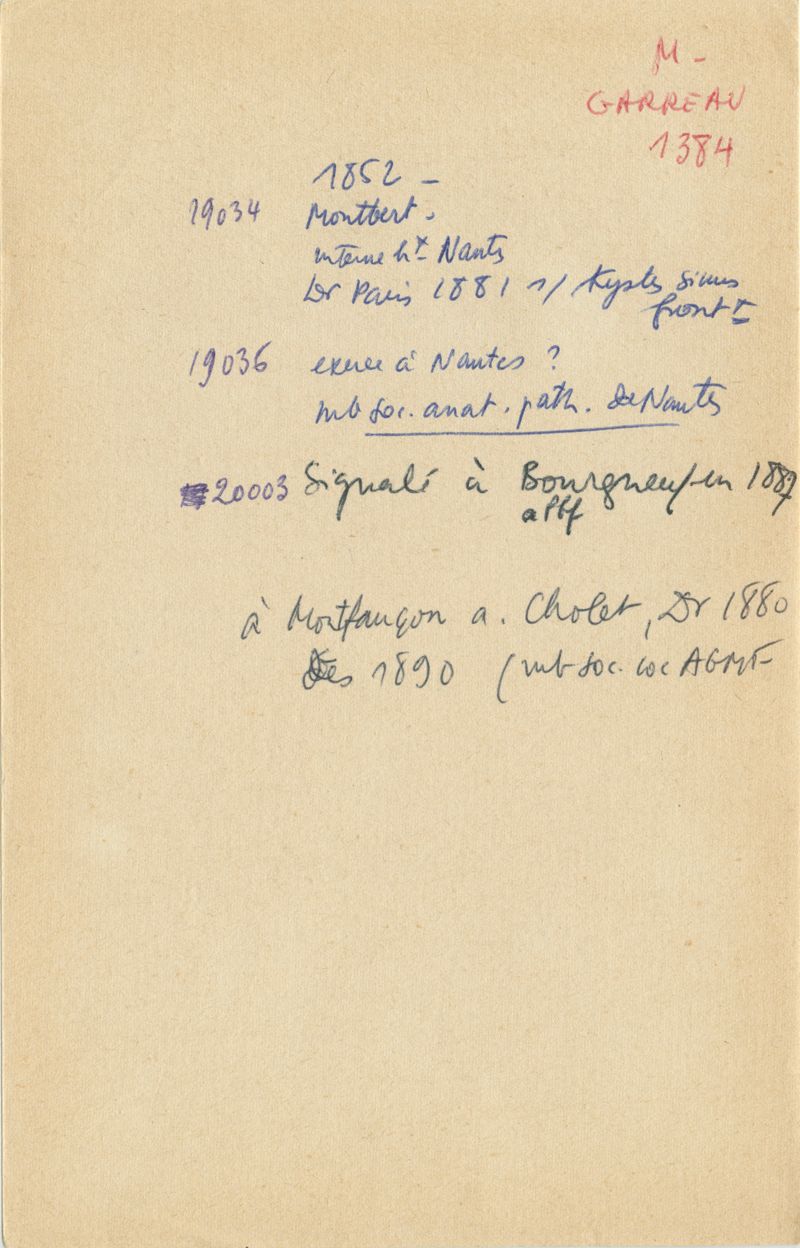 M -
GARREAU
1384
1852 -
19034 Montbert.
interne hx Nantes
Dr Paris 1881 s/ Kystes sinus
frontx
19036 exerce à Nantes ?
mb soc. anat. path. de Nantes
20003 Signalé à Bourgneuf en
à Montfaucon a. Cholet, Dr 1880
Dès 1890 (mb soc. loc AGMF